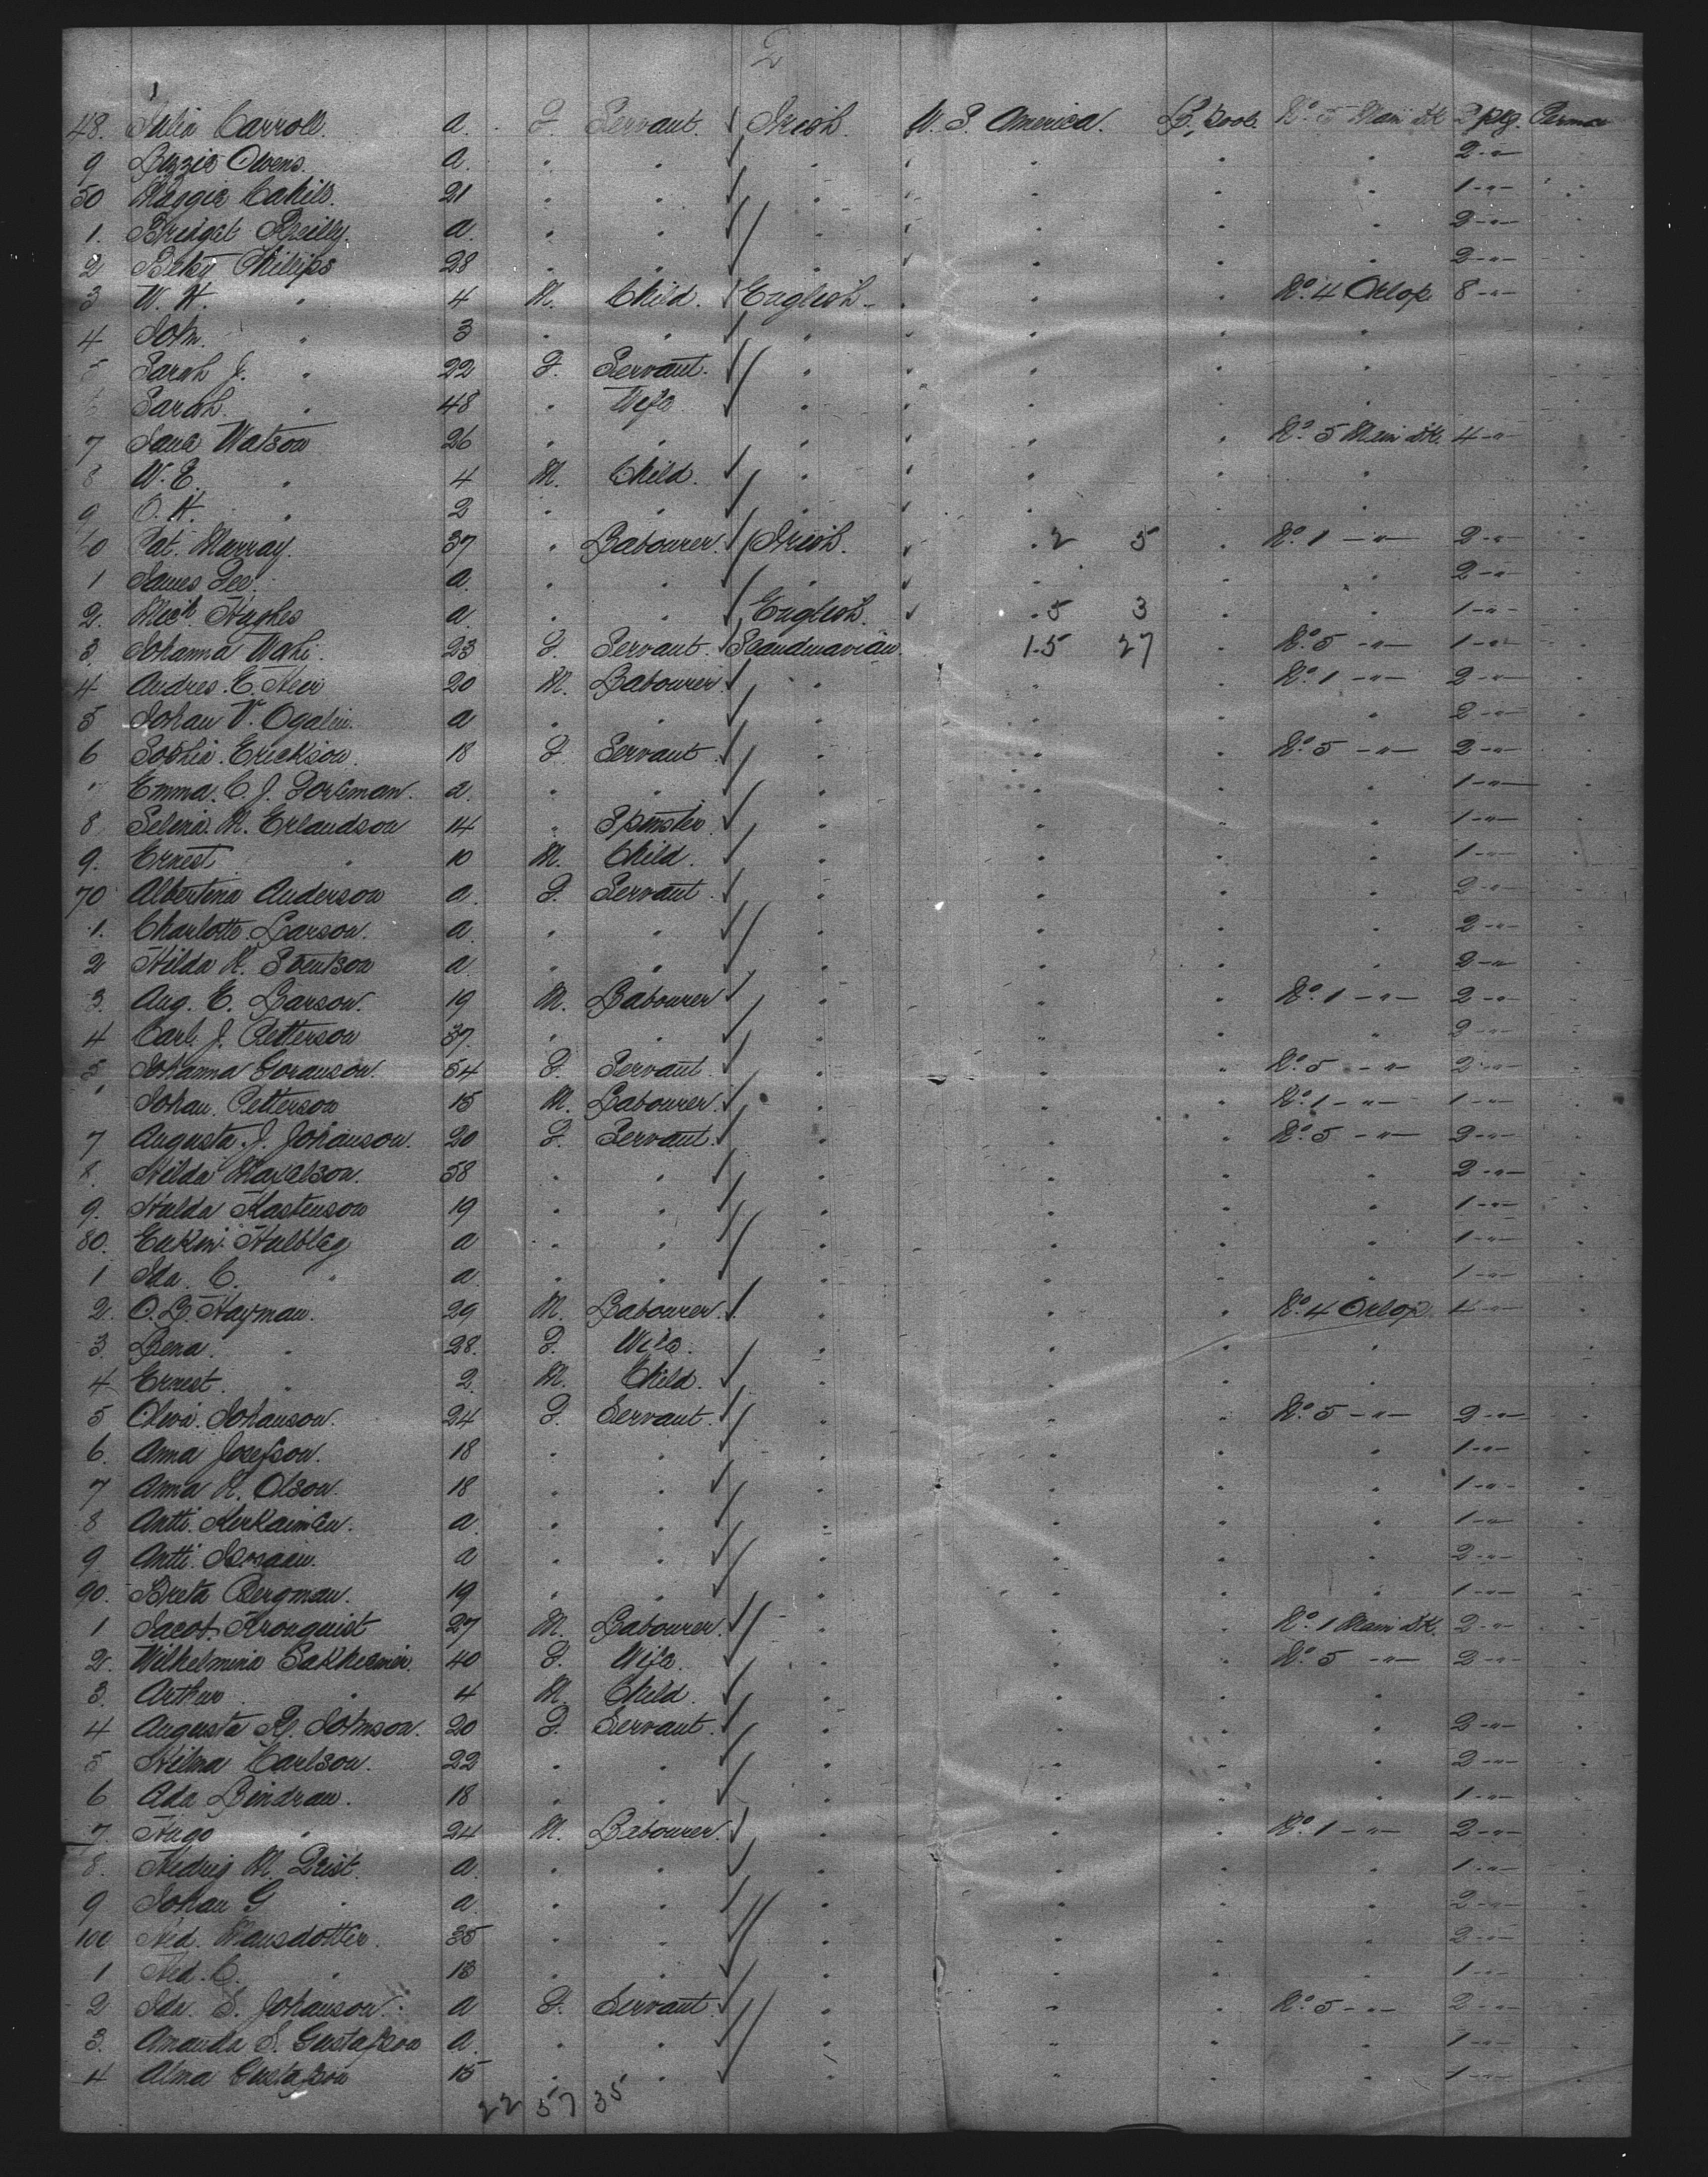 2
48. Julia Carroll. a. F. Servant. ✓ Irish. U. S. America. L'pool. No. 5 Main dk 2 pkg.
9 Lizzie Owens. a. " " ✓ " " " " " 2 - " -
50 Maggie Cahill. 21 " " ✓ " " " " " 1 - " -
1. Bridget Reilly a. " " ✓ " " " " " 2 - " -
2 Phillips 28 " " ✓ " " " " " 2 - " -
3 W. H. " 4 M. Child. ✓ English. " " " No. 4 Orlop. 8 - " -
4 John. " 3 " " ✓ " " " " "
5 Sarah J. " 22 F. Servant. ✓ " " " " "
6 Sarah. " 48 " Wife ✓ " " " " "
7 Jane Watson 26 " " ✓ " " " " No. 5 Main dk. 4 - " -
8 W. E. " 4 M. Child. ✓ " " " " "
9 O. H. " 2 " " ✓ " " " " "
60 Pat. Murray. 37 " Labourer. ✓ Irish. " " 2 5 " No. 1 - " - 2 - " -
1 James Lee. a. " " ✓ " " " " " 2 - " -
2. Mich. Hughes a. " " ✓ English. " " 5 3 " " 1 - " -
3. Johanna Wahi. 23 F. Servant. ✓ Scandinavian. 15 27 " No. 5 - " - 1 - " -
4 Andres. E. 20 M. Labourer. ✓ " " " No. 1 - " - 2 - " -
5 Johan V. a " " ✓ " " " " 2 - " -
6 Sophia. Erickson. 18 F. Servant. ✓ " " " No. 5 - " - 2 - " -
Emma. C. J. a. " " ✓ " " " " 1 - " -
8 Selina. M. Erlandson 14 " Spinster. ✓ " " " " 1 - " -
9. Ernest. " 10 M. Child. ✓ " " " " 1 - " -
70 Albertina Anderson a. F. Servant. ✓ " " " " 2 - " -
1. Charlotte. Larson. a. " " ✓ " " " " 2 - " -
2 Hilda K. Svenson a. " " ✓ " " " " 2 - " -
3. Aug. E. Larson. 19 M. Labourer ✓ " " " No. 1 - " - 2 - " -
4 Carl. J. Petterson 37. " " ✓ " " " " 2 - " -
5 Johanna Goranson. 54 F. Servant. ✓ " " " No. 5 - " - 2 - " -
Johan. Petterson 15 M. Labourer. ✓ " " " No. 1 - " - 1 - " -
7 Augusta. J. Johanson. 20 F. Servant. ✓ " " " No. 5 - " - 2 - " -
8. Hilda 38 " " ✓ " " " " 2 - " -
9. Hulda Kastenson 19 " " ✓ " " " " 1 - " -
80. a " " ✓ " " " " 1 - " -
1 Ida. C. " a. " " ✓ " " " " 1 - " -
2. O. L. Hayman. 29 M. Labourer. ✓ " " " No. 4 Orlop. 4 - " -
3. Lena. " 28. F. Wife. ✓ " " " "
4 Ernest. " 2. M. Child. ✓ " " " "
5 Johanson. 24 F. Servant. ✓ " " " No. 5 - " - 2 - " -
6. Anna Josefson. 18 " " ✓ " " " " 1 - " -
7 Anna K. Olson. 18 " " ✓ " " " " 1 - " -
8. Antti. a. " " ✓ " " " " 1 - " -
9 Antti. a " " ✓ " " " " 2 - " -
90. Greta Bergman. 19 " " ✓ " " " " 1 - " -
1 Jacob Kronquist 27 M. Labourer. ✓ " " " No. 1 Main dk. 2 - " -
2. Wilhelmina 40 F. Wife. ✓ " " " No. 5 - " - 2 - " -
3. Arthur. " 4 M. Child. ✓ " " " "
4 Augusta Johnson. 20 F. Servant. ✓ " " " " 2 - " -
5 Hilma Carlson. 22 " " ✓ " " " " 2 - " -
6 Ada Lindran. 18 " " ✓ " " " " 1 - " -
7. Hugo " 24 M. Labourer. ✓ " " " No. 1 - " - 2 - " -
8. Hedvig M. a. " " ✓ " " " " 1 - " -
9 Johan G " a. " " ✓ " " " " 2 - " -
100 Hed. Mansdotter. 35 " " ✓ " " " " 2 - " -
1 Hed. C. " 13 " " ✓ " " " " 1 - " -
2 Ida. S. Johanson. a F. Servant. ✓ " " " No. 5 - " - 2 - " -
3. Amanda S. Gustafson a. " " ✓ " " " " 1 - " -
4 Alma Gustafson 15 " " ✓ " " " " 1 - " -
22 57 35